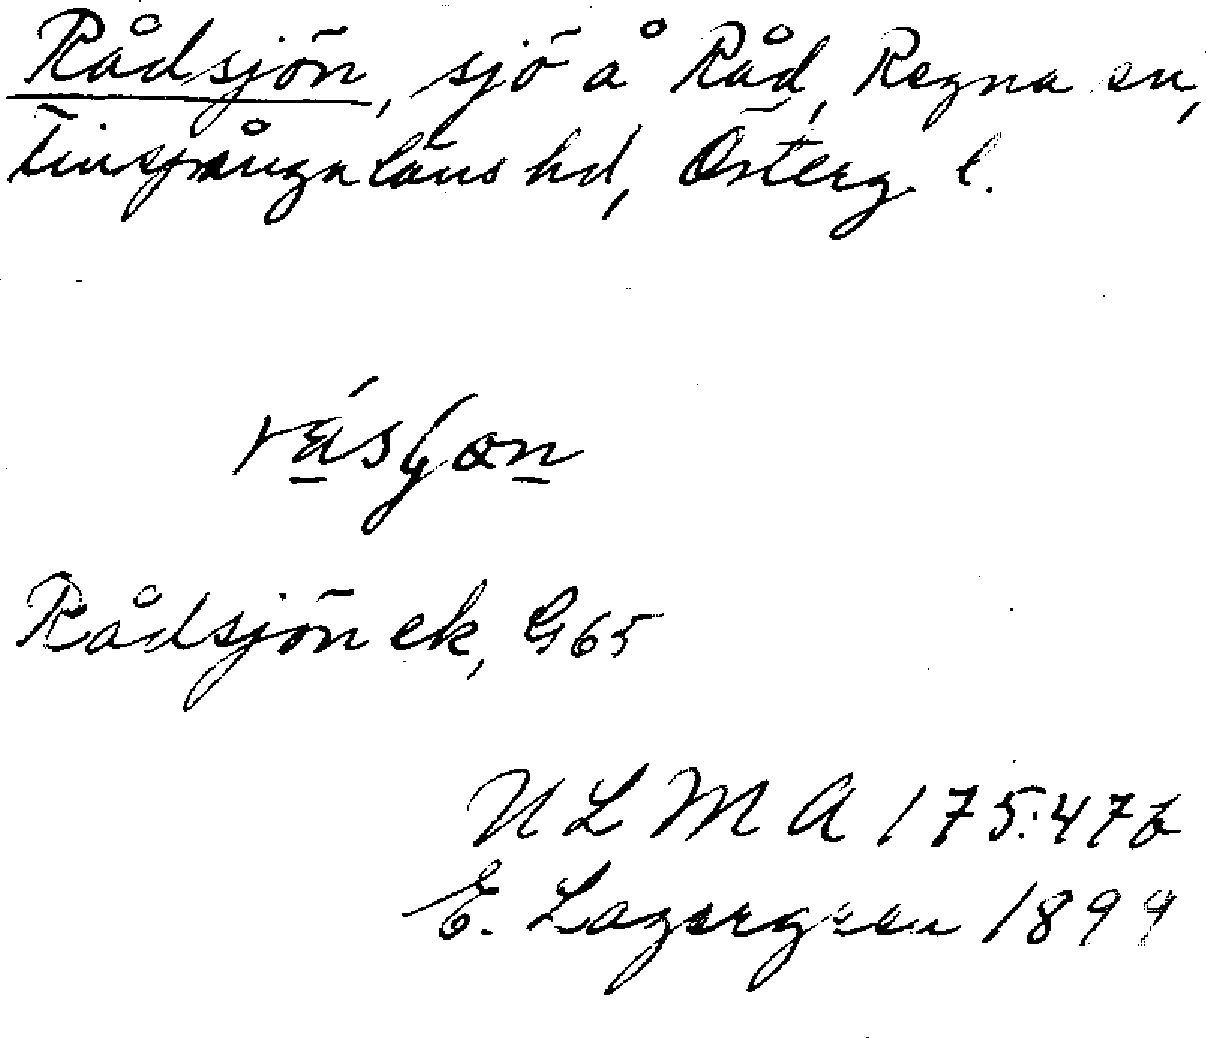 Rådsjön, sjö å Råd, Regna sn,
Finspångaläns hd, Österg. l.
Rådsjön ek, G65
ULMA 175:47b
E. Lagergren 1899